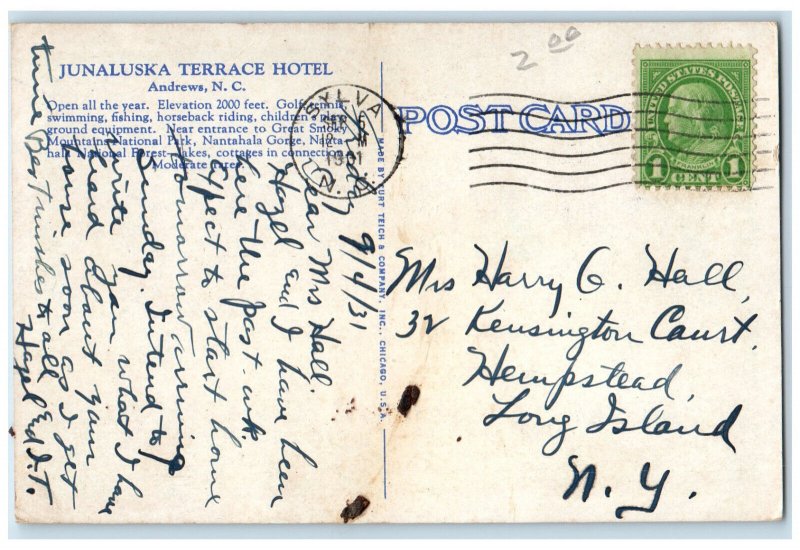 JUNALUSKA TERRACE HOTEL
Andrews, N. C.
Open all the year. Elevation 2000 feet. Golf, tennis,
swimming, fishing, horseback riding, children's play
ground equipment. Near entrance to Great Smoky
Mountains National Park, Nantahala Gorge, Nanta-
hala National Forest Lakes, cottages in connection
Moderate rates.
2 00
SYLVA
1931
N.C.
POST CARD
UNITED STATES POSTAGE
FRANKLIN
1 CENT 1
MADE BY CURT TEICH & COMPANY, INC., CHICAGO, U.S.A.
9/4/31
Dear Mrs Hall.
Hazel and I have been
here the past wk.
Expect to start home
tomorrow morning
Sunday. Intend to
write you what I have
heard about your
house soon as I get
time Best wishes to all
Hazel and J.T.
Mrs Harry G. Hall,
32 Kensington Court.
Hempstead,
Long Island
N. Y.